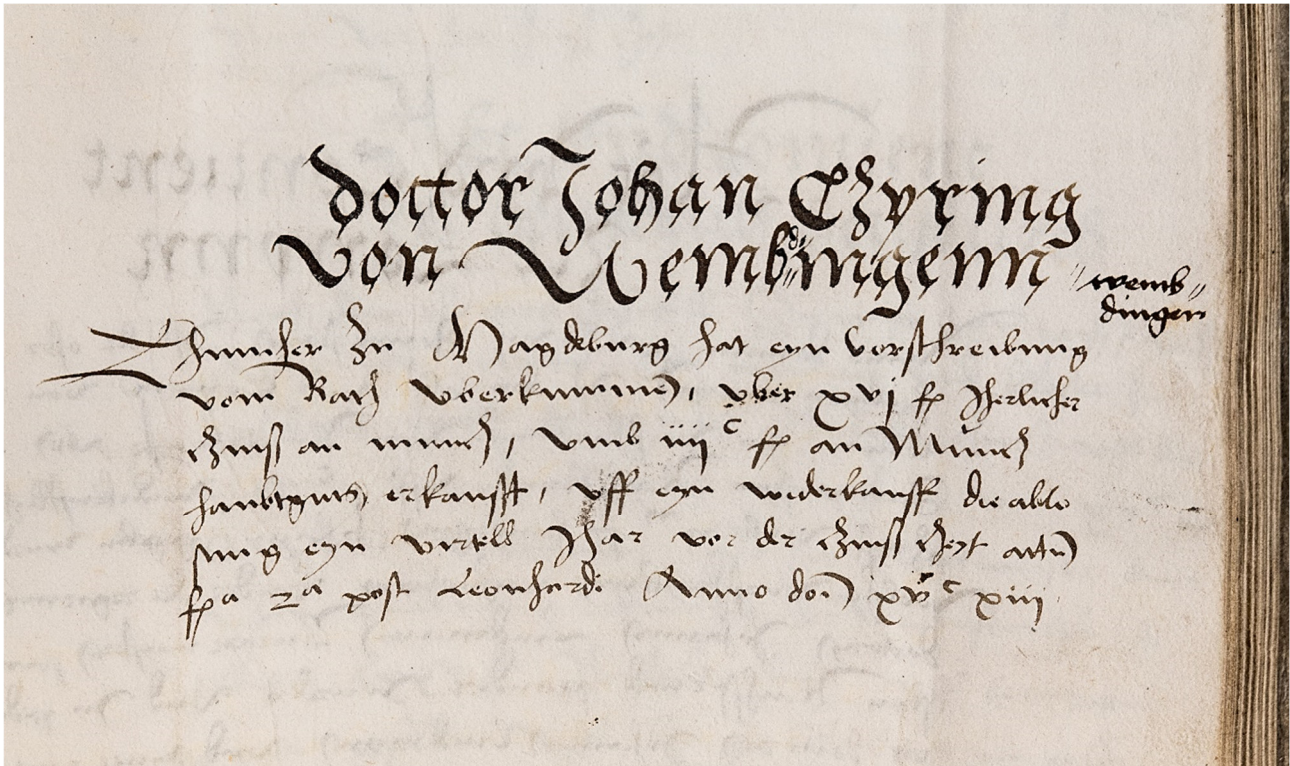 Doctor Johan Czyring
von Wembdingenn
wemb-
dingen
Thumher zu Magdeburg hat eyn vorschreibung
vom Rath uberkummen, uber xvj fl Jherlicher
Czinß an muncz, vmb iiij c fl an Muncz
haubtguts erkaufft, vff eyn widerkauff die ablo
sung eyn virtell Jhar vor der Czinß Czeyt actu
fa 2a post Leonhardi Anno doi xv c xiij